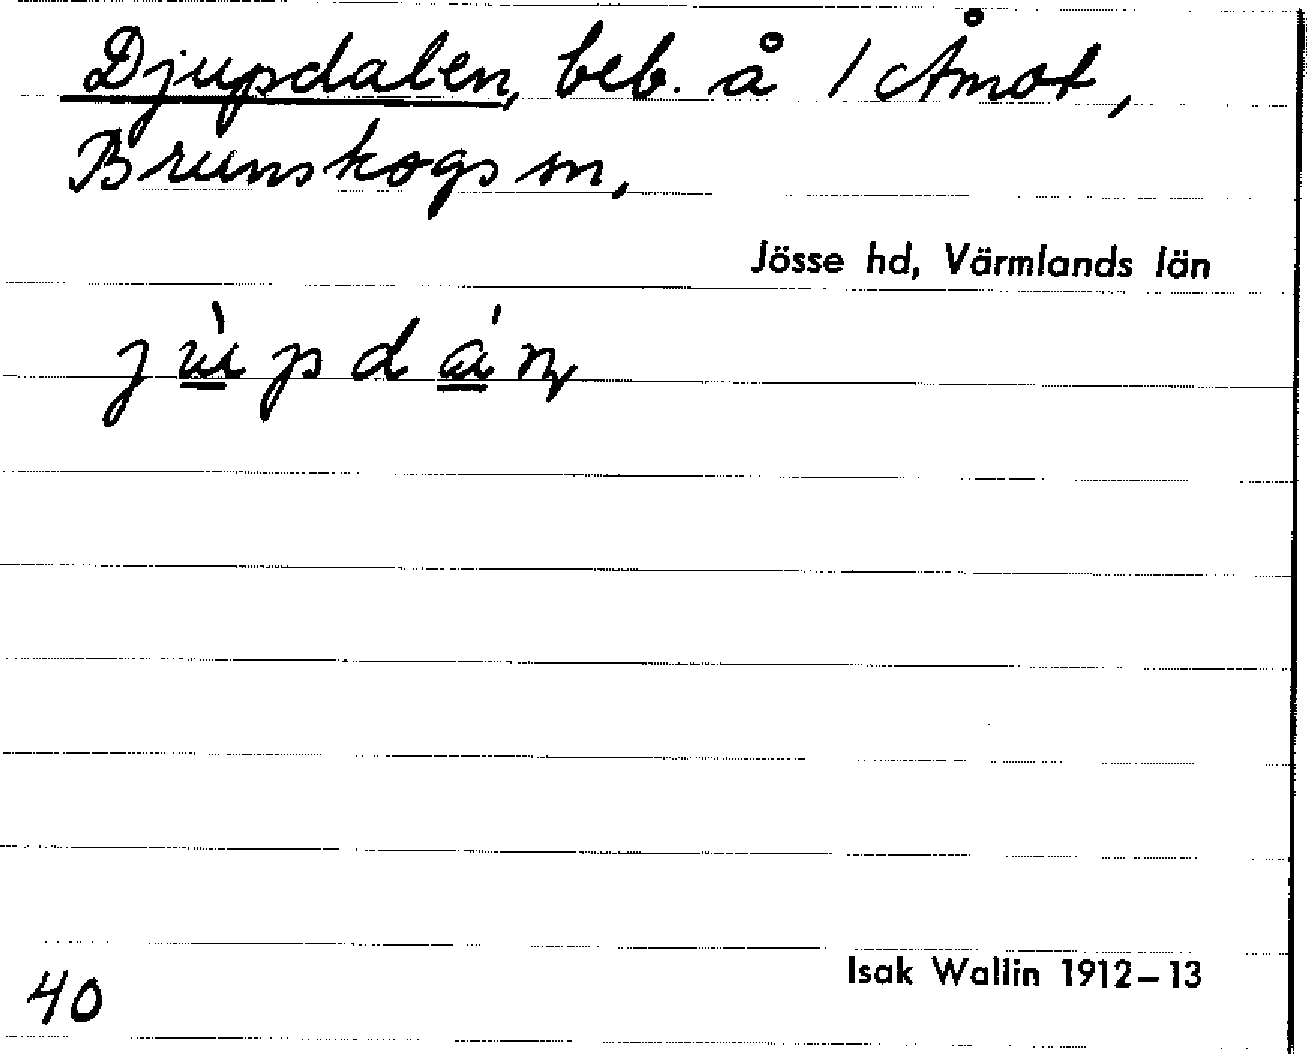 Djupdalen, beb. å 1 Åmot,
Brunskogs sn,
Jösse hd, Värmlands län
Isak Wallin 1912–13
40